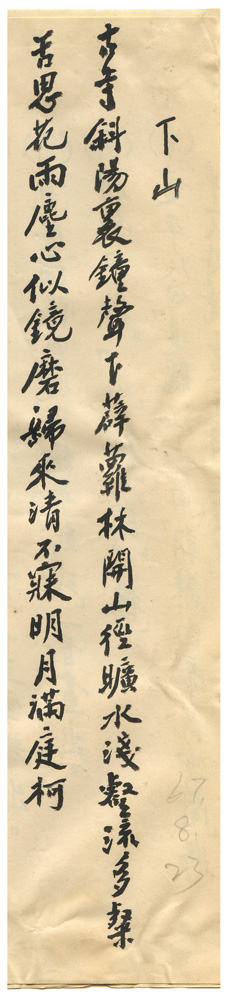 下山
古寺斜陽裏鐘聲下薜蘿林開山徑曠水淺壑流多粲
思花雨塵心似鏡磨歸來清不寐明月滿庭柯
67
8.
23